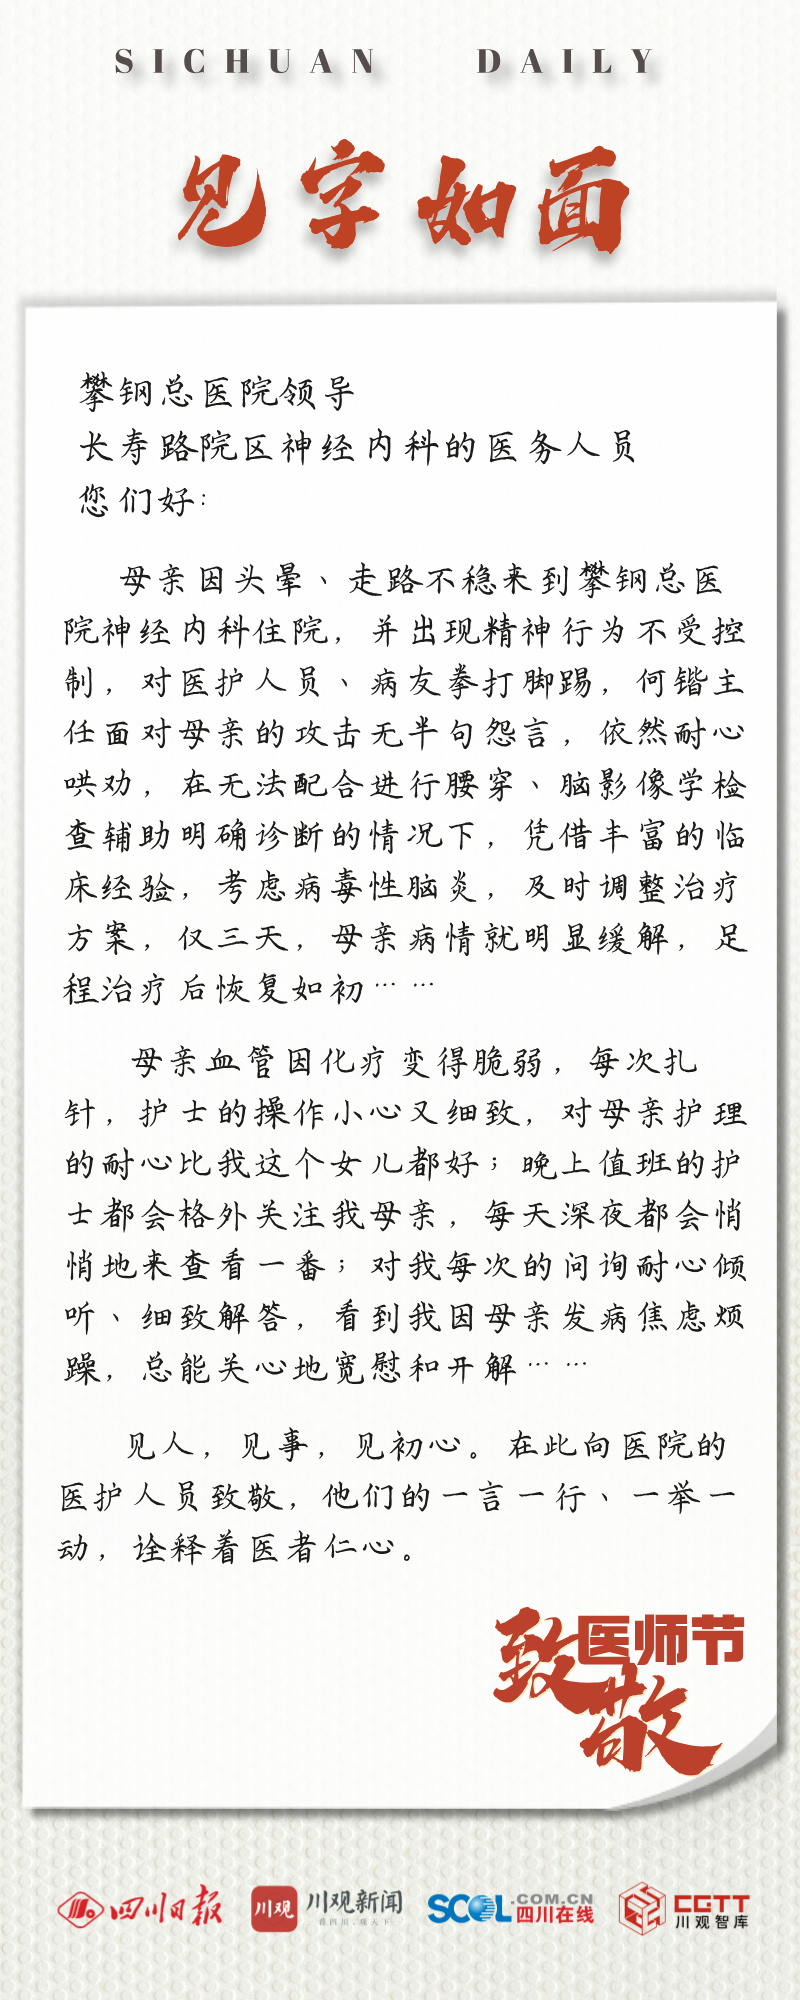 SICHUAN DAILY
见字如面
攀钢总医院领导
长寿路院区神经内科的医务人员
您们好：
母亲因头晕、走路不稳来到攀钢总医
院神经内科住院，并出现精神行为不受控
制，对医护人员、病友拳打脚踢，何锴主
任面对母亲的攻击无半句怨言，依然耐心
哄劝，在无法配合进行腰穿、脑影像学检
查辅助明确诊断的情况下，凭借丰富的临
床经验，考虑病毒性脑炎，及时调整治疗
方案，仅三天，母亲病情就明显缓解，足
程治疗后恢复如初……
母亲血管因化疗变得脆弱，每次扎
针，护士的操作小心又细致，对母亲护理
的耐心比我这个女儿都好；晚上值班的护
士都会格外关注我母亲，每天深夜都会悄
悄地来查看一番；对我每次的问询耐心倾
听、细致解答，看到我因母亲发病焦虑烦
躁，总能关心地宽慰和开解……
见人，见事，见初心。在此向医院的
医护人员致敬，他们的一言一行、一举一
动，诠释着医者仁心。
致敬医师节
四川日报 川观 川观新闻 SCOL.COM.CN 四川在线 CGTT 川观智库
看四川，观天下